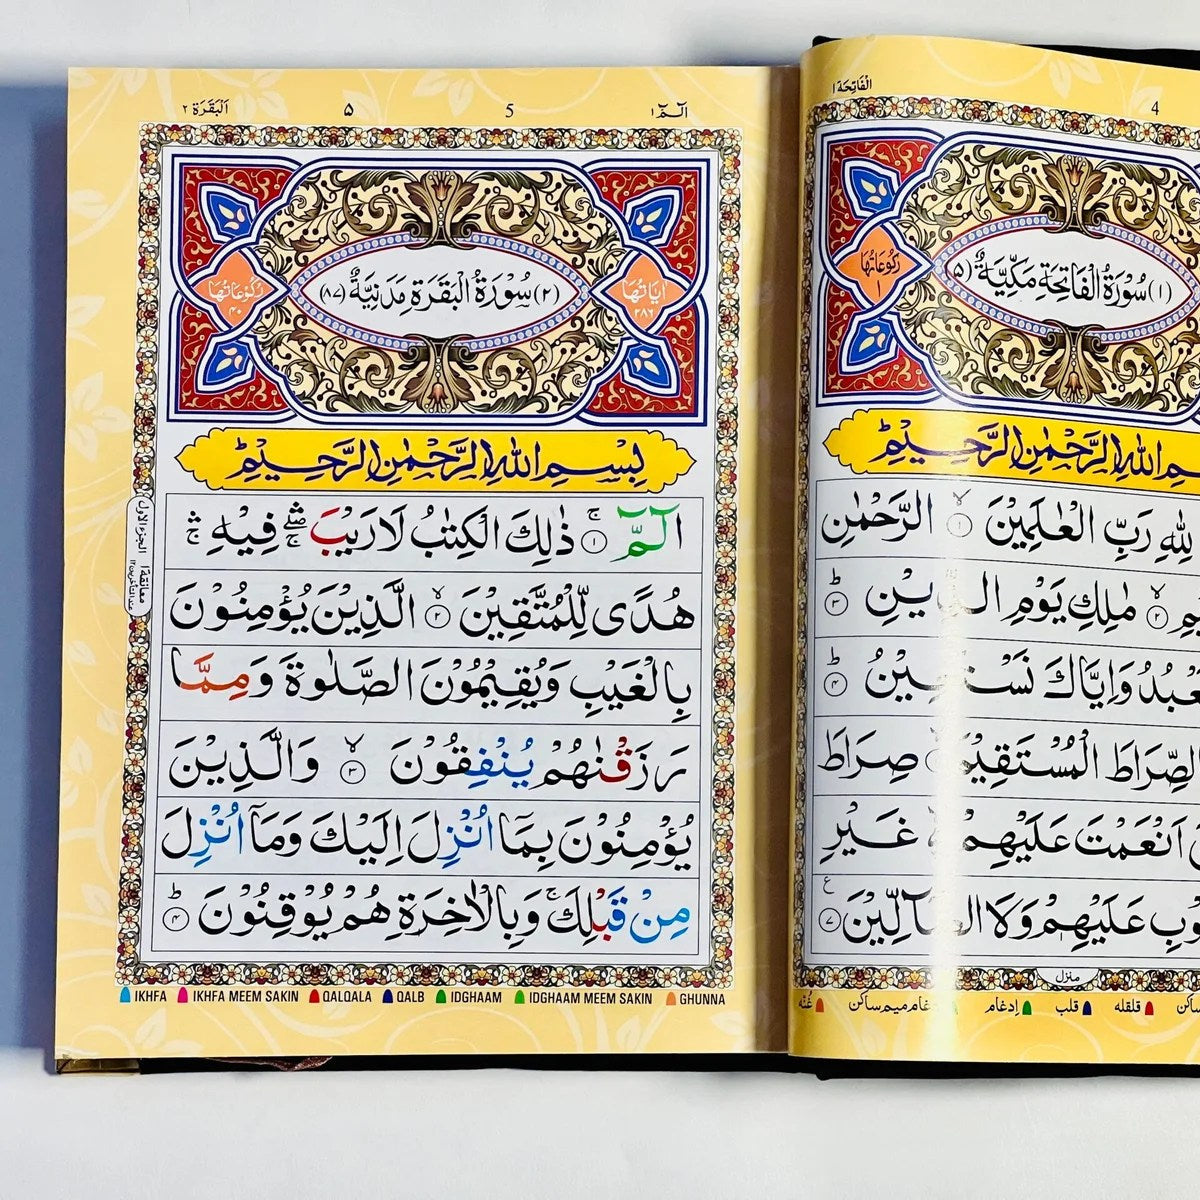 الفاتحة ١
4
ركوعاتها
١
(١) سُوْرَةُ الْفَاتِحَةِ مَكِّيَّةٌ (٥)
الرَّحْمٰنِ الرَّحِيْمِ
لِلّٰهِ رَبِّ الْعٰلَمِيْنَ ١ الرَّحْمٰنِ
٢ مٰلِكِ يَوْمِ الدِّيْنِ ٣
وَاِيَّاكَ نَسْتَعِيْنُ ٤
الصِّرَاطَ الْمُسْتَقِيْمَ صِرَاطَ
اَنْعَمْتَ عَلَيْهِمْ غَيْرِ
عَلَيْهِمْ وَلَا الضَّآلِّيْنَ ٧
منزل
قلقله قلب إدغام غنّه
الٓمّٓ ١ 5 ٥ اَلْبَقَرَة ٢
اٰيَاتُهَا
٢٨٦
(٢) سُوْرَةُ الْبَقَرَةِ مَدَنِيَّةٌ (٨٧)
رُكُوْعَاتُهَا
٤٠
بِسْمِ اللّٰهِ الرَّحْمٰنِ الرَّحِيْمِ
الٓمّٓ ۚ ١ ذٰلِكَ الْكِتٰبُ لَا رَيْبَ ۛ فِيْهِ ۛ
هُدًى لِّلْمُتَّقِيْنَ ۙ ٢ الَّذِيْنَ يُؤْمِنُوْنَ
بِالْغَيْبِ وَيُقِيْمُوْنَ الصَّلٰوةَ وَمِمَّا
رَزَقْنٰهُمْ يُنْفِقُوْنَ ۙ ٣ وَالَّذِيْنَ
يُؤْمِنُوْنَ بِمَآ اُنْزِلَ اِلَيْكَ وَمَآ اُنْزِلَ
مِنْ قَبْلِكَ ۚ وَبِالْاٰخِرَةِ هُمْ يُوْقِنُوْنَ ؕ ٤
معانقة ١ الجزء الاول
عند المتأخرين ١٢
IKHFA IKHFA MEEM SAKIN QALQALA QALB IDGHAAM IDGHAAM MEEM SAKIN GHUNNA